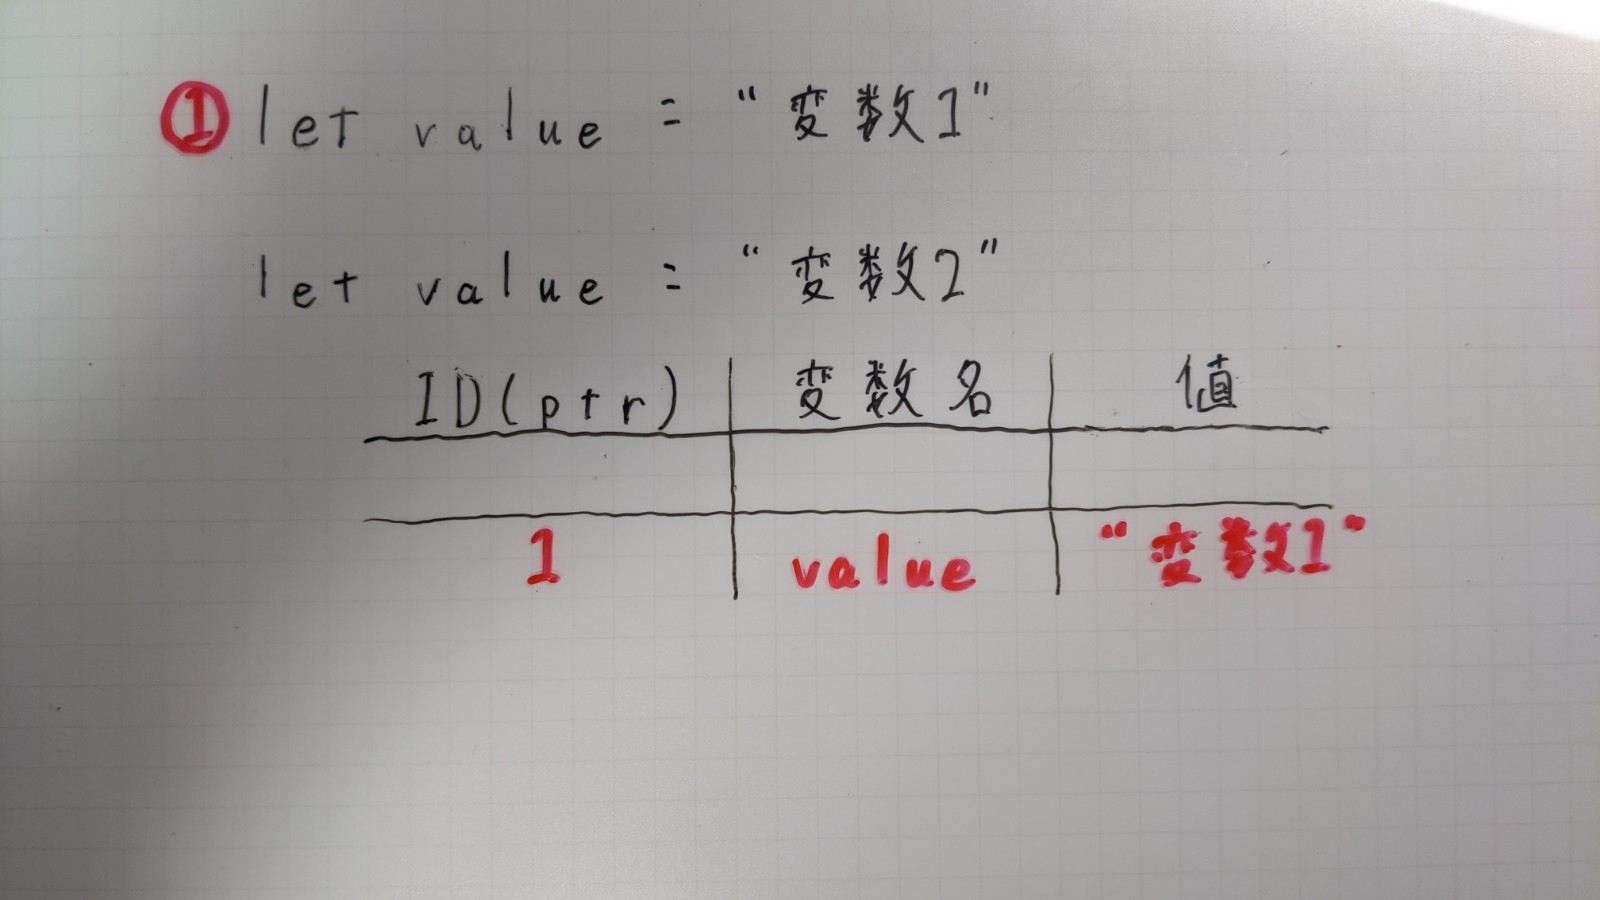 ① let value = “変数1”
let value = “変数2”
ID(ptr) 変数名 値
1 value “変数1”